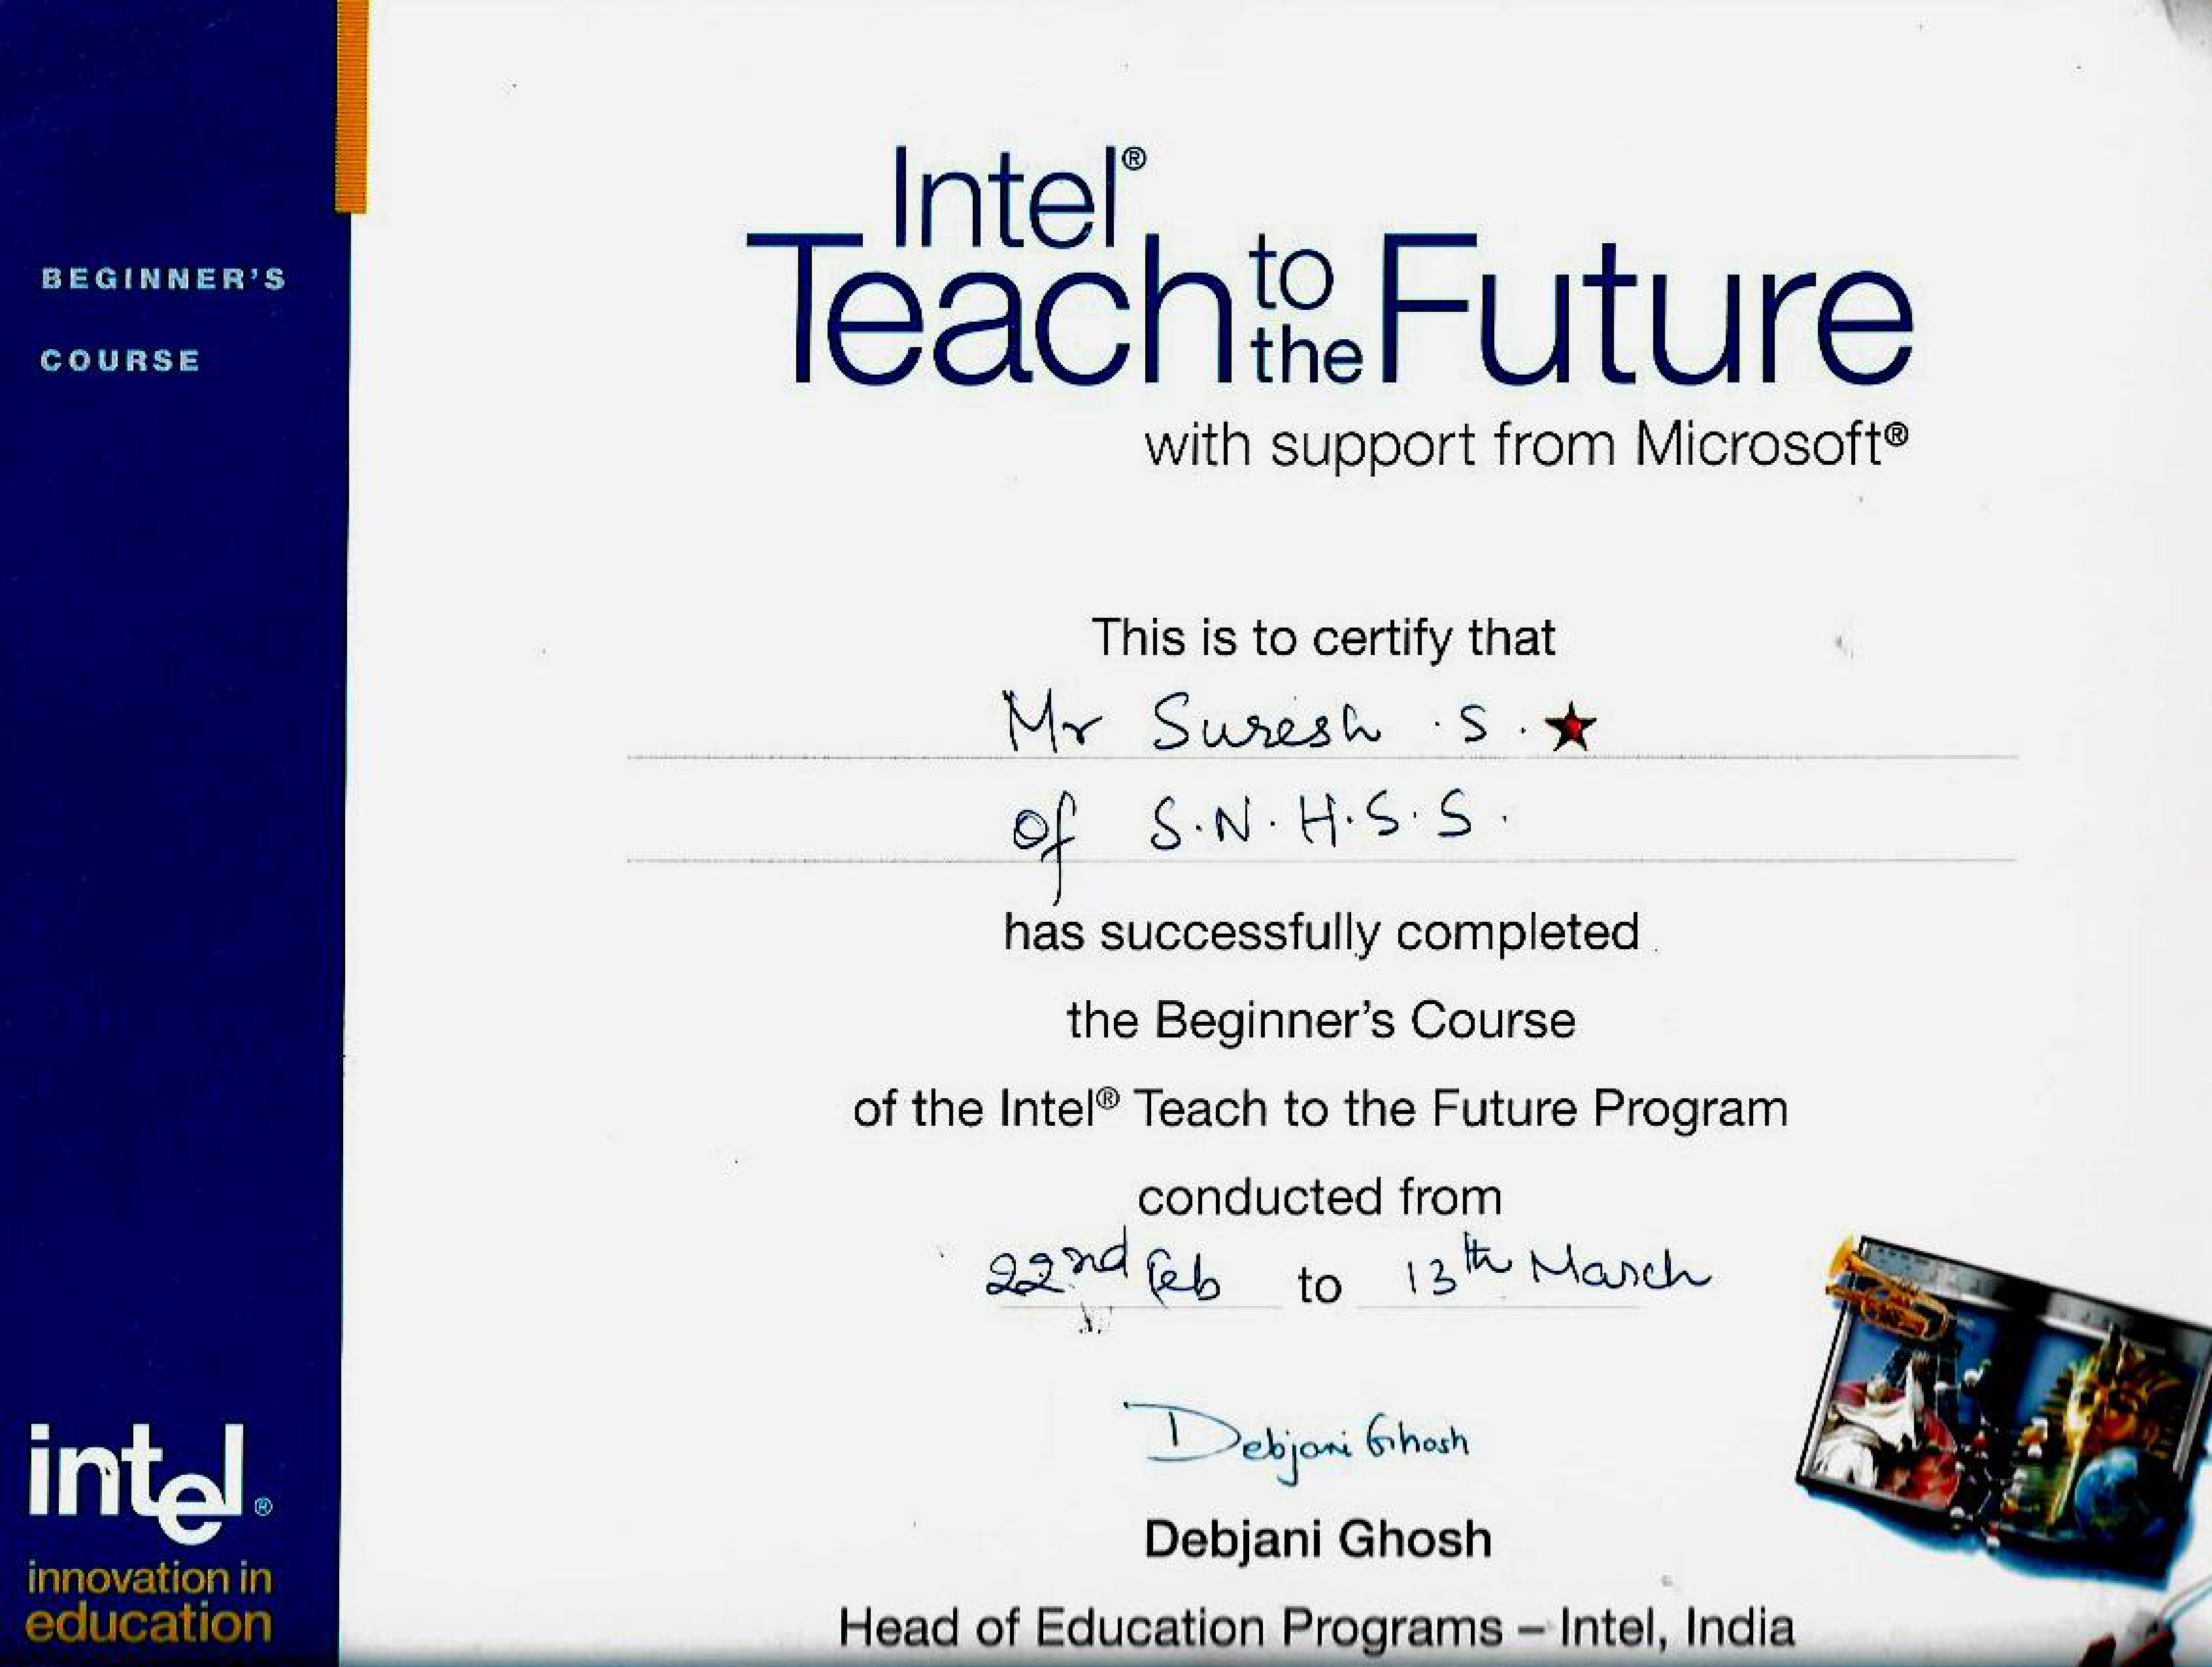 BEGINNER'S
COURSE
Intel®
Teach to the Future
with support from Microsoft®
This is to certify that
Mr Suresh .S.
of S.N.H.S.S.
has successfully completed
the Beginner's Course
of the Intel® Teach to the Future Program
conducted from
22nd Feb to 13th March
Debjani Ghosh
Debjani Ghosh
Head of Education Programs – Intel, India
intel®
innovation in
education